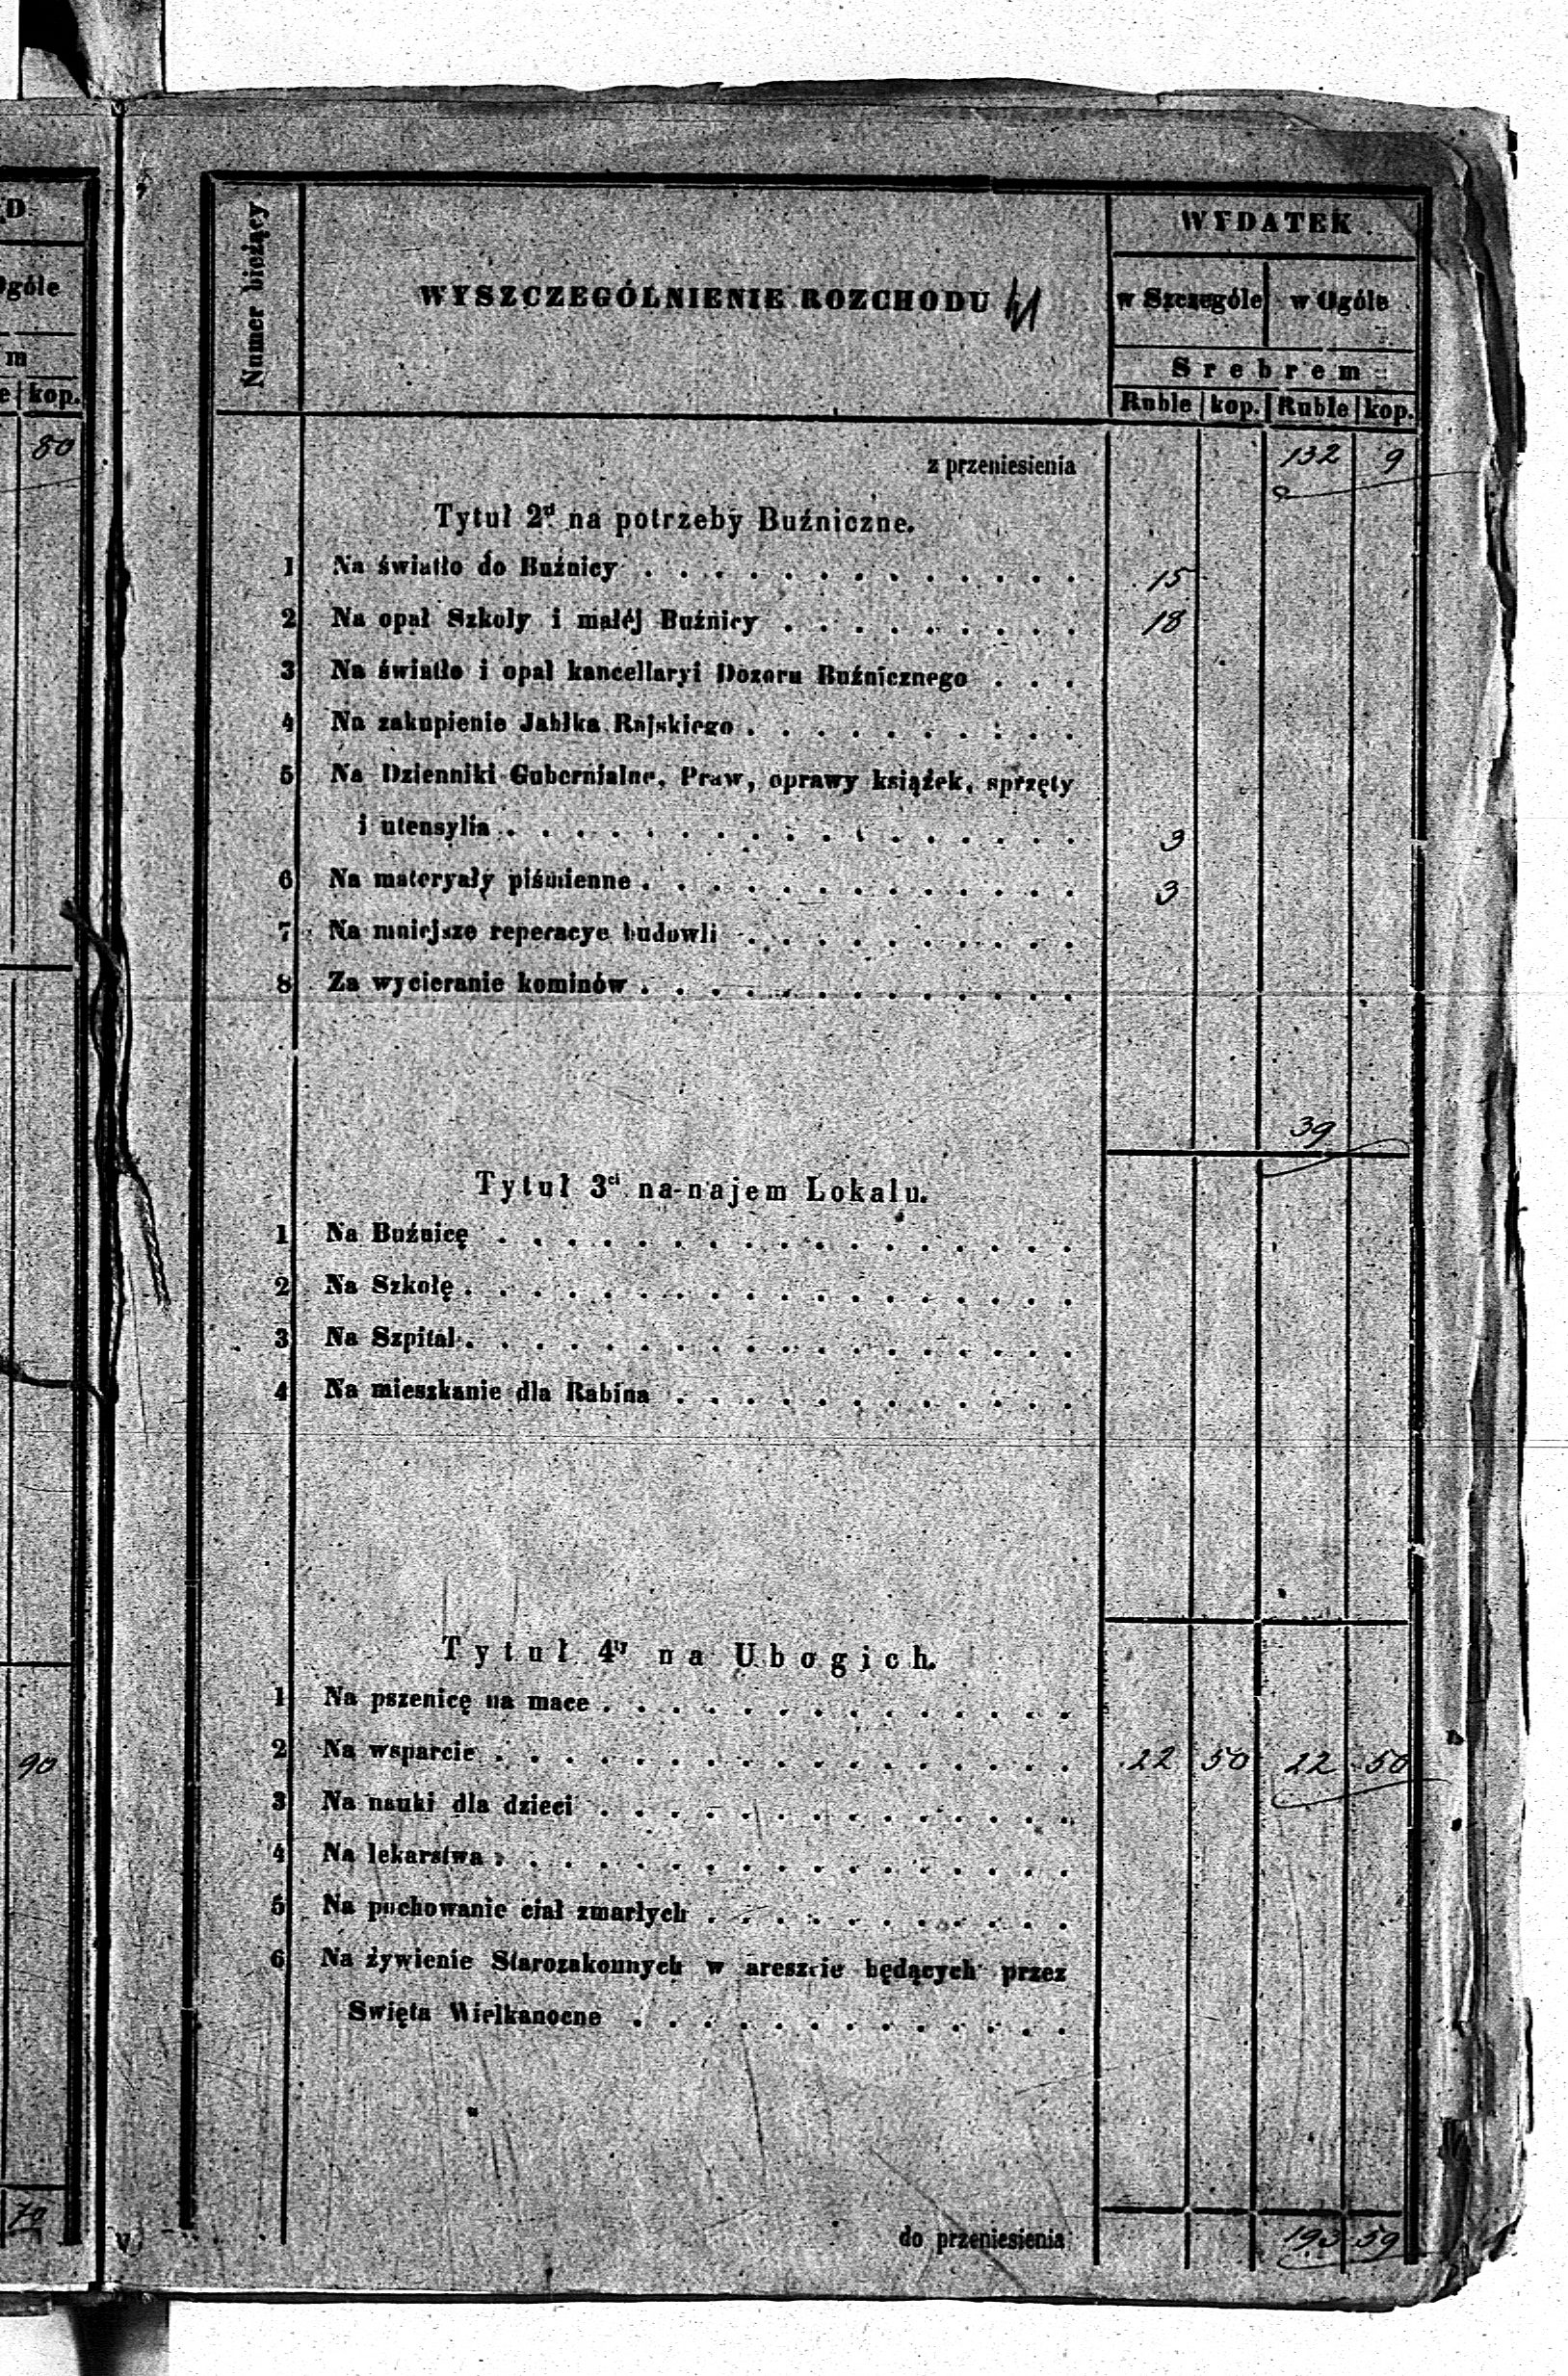 D
Ogóle
m
e kop.
80
90
70
Numer bieżący
WYSZCZEGÓLNIENIE ROZCHODU
WYDATEK
w Szczególe w Ogóle
Srebrem
Ruble kop. Ruble kop.
z przeniesienia 132 9
Tytuł 2d na potrzeby Buźniczne.
1 Na światło do Buźnicy . . . . . . . . . . . . . 15
2 Na opał Szkoły i małéj Buźnicy . . . . . . . . . 18
3 Na światło i opał kancellaryi Dozoru Buźnicznego . . .
4 Na zakupienie Jabłka Rajskiego . . . . . . . . . .
5 Na Dzienniki Gubernialne, Praw, oprawy książek, sprzęty
i utensylia . . . . . . . . . . . . . . . . . 3
6 Na materyały piśmienne . . . . . . . . . . . . . 3
7 Na mniejsze reperacye budowli . . . . . . . . . .
8 Za wycieranie kominów . . . . . . . . . . . . .
39
Tytuł 3ci na najem Lokalu.
1 Na Buźnicę . . . . . . . . . . . . . . . . .
2 Na Szkołę . . . . . . . . . . . . . . . . . .
3 Na Szpital . . . . . . . . . . . . . . . . . .
4 Na mieszkanie dla Rabina . . . . . . . . . . . .
Tytuł 4ty na Ubogich.
1 Na pszenicę na mace . . . . . . . . . . . . . .
2 Na wsparcie . . . . . . . . . . . . . . . . . 22 50 22 50
3 Na nauki dla dzieci . . . . . . . . . . . . . .
4 Na lekarstwa . . . . . . . . . . . . . . . . .
5 Na pochowanie ciał zmarłych . . . . . . . . . . .
6 Na żywienie Starozakonnych w areszcie będących przez
Swięta Wielkanocne . . . . . . . . . . . . .
do przeniesienia 193 59